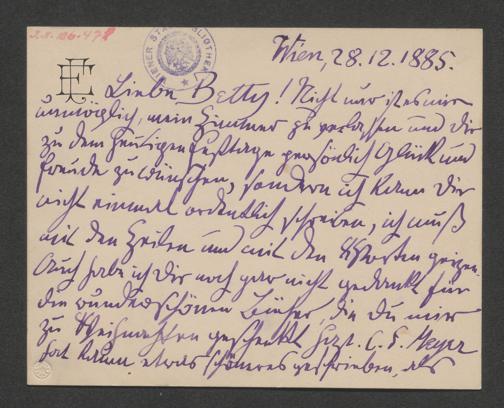 I.N. 186.478
WIENER STADTBIBLIOTHEK
EF
Wien, 28.12.1885.
Liebe Betty! Nicht nur ist es mir
unmöglich, mein Zimmer zu verlassen und Dir
zu dem heutigen Festtage persönlich Glück und
Freude zu wünschen, sondern ich kann Dir
nicht einmal ordentlich schreiben, ich muß
mit den Zeilen und mit den Worten geizen.
Auch habe ich Dir noch gar nicht gedankt für
die wunderschönen Bücher, die Du mir
zu Weihnachten geschenkt hast. C. F. Meyer
hat kaum etwas schöneres geschrieben, als